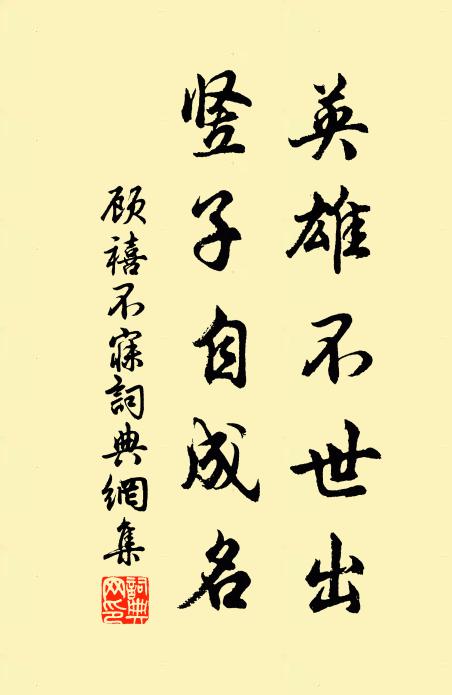 英雄不世出
竖子自成名
顾禧不寐詞典網集
詞典网印